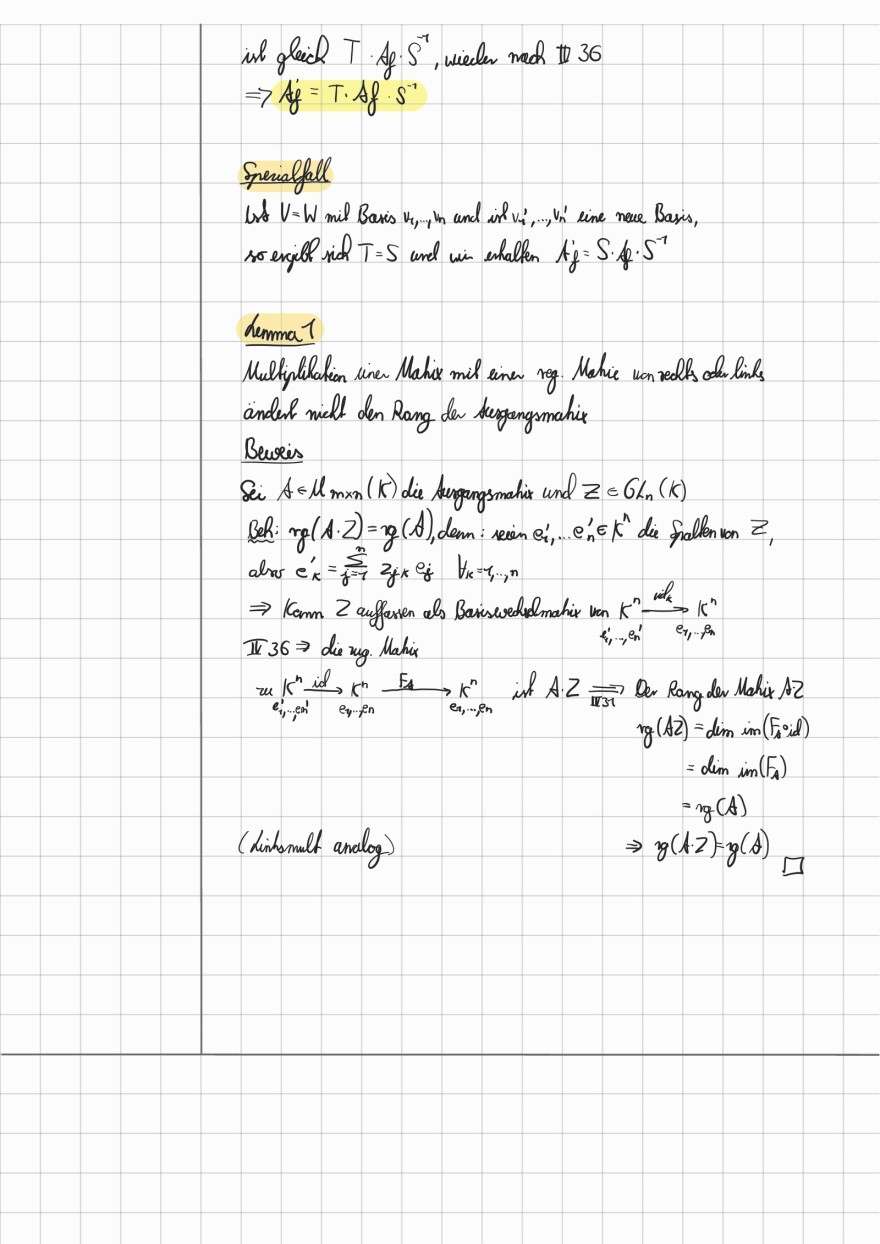 ist gleich T · Af · S⁻¹, wieder nach III 36
⇒ A'f = T · Af · S⁻¹
Spezialfall
Ist V=W mit Basis v₁,...,vn und ist v₁',...,vn' eine neue Basis,
so ergibt sich T=S und wir erhalten A'f = S · Af · S⁻¹
Lemma 1
Multiplikation einer Matrix mit einer reg. Matrix von rechts oder links
ändert nicht den Rang der Ausgangsmatrix
Beweis
Sei A ∈ M m×n (K) die Ausgangsmatrix und Z ∈ GLn (K)
Beh: rg(A·Z) = rg(A), denn: seien e₁',...e'n ∈ Kⁿ die Spalten von Z,
also e'k = Σⁿj=1 zjk ej ∀k=1,...,n
⇒ Kann Z auffassen als Basiswechselmatrix von Kⁿ —idk→ Kⁿ
e₁',...,en' e₁,...,en
III 36 ⇒ die zug. Matrix
zu Kⁿ —id→ Kⁿ —FA→ Kⁿ ist A·Z ⇒ III 31 Der Rang der Matrix AZ
e₁',...,en' e₁,...,en e₁,...,en
rg(AZ) = dim im(FA∘id)
= dim im(FA)
= rg(A)
(Linksmult analog) ⇒ rg(A·Z)=rg(A) □